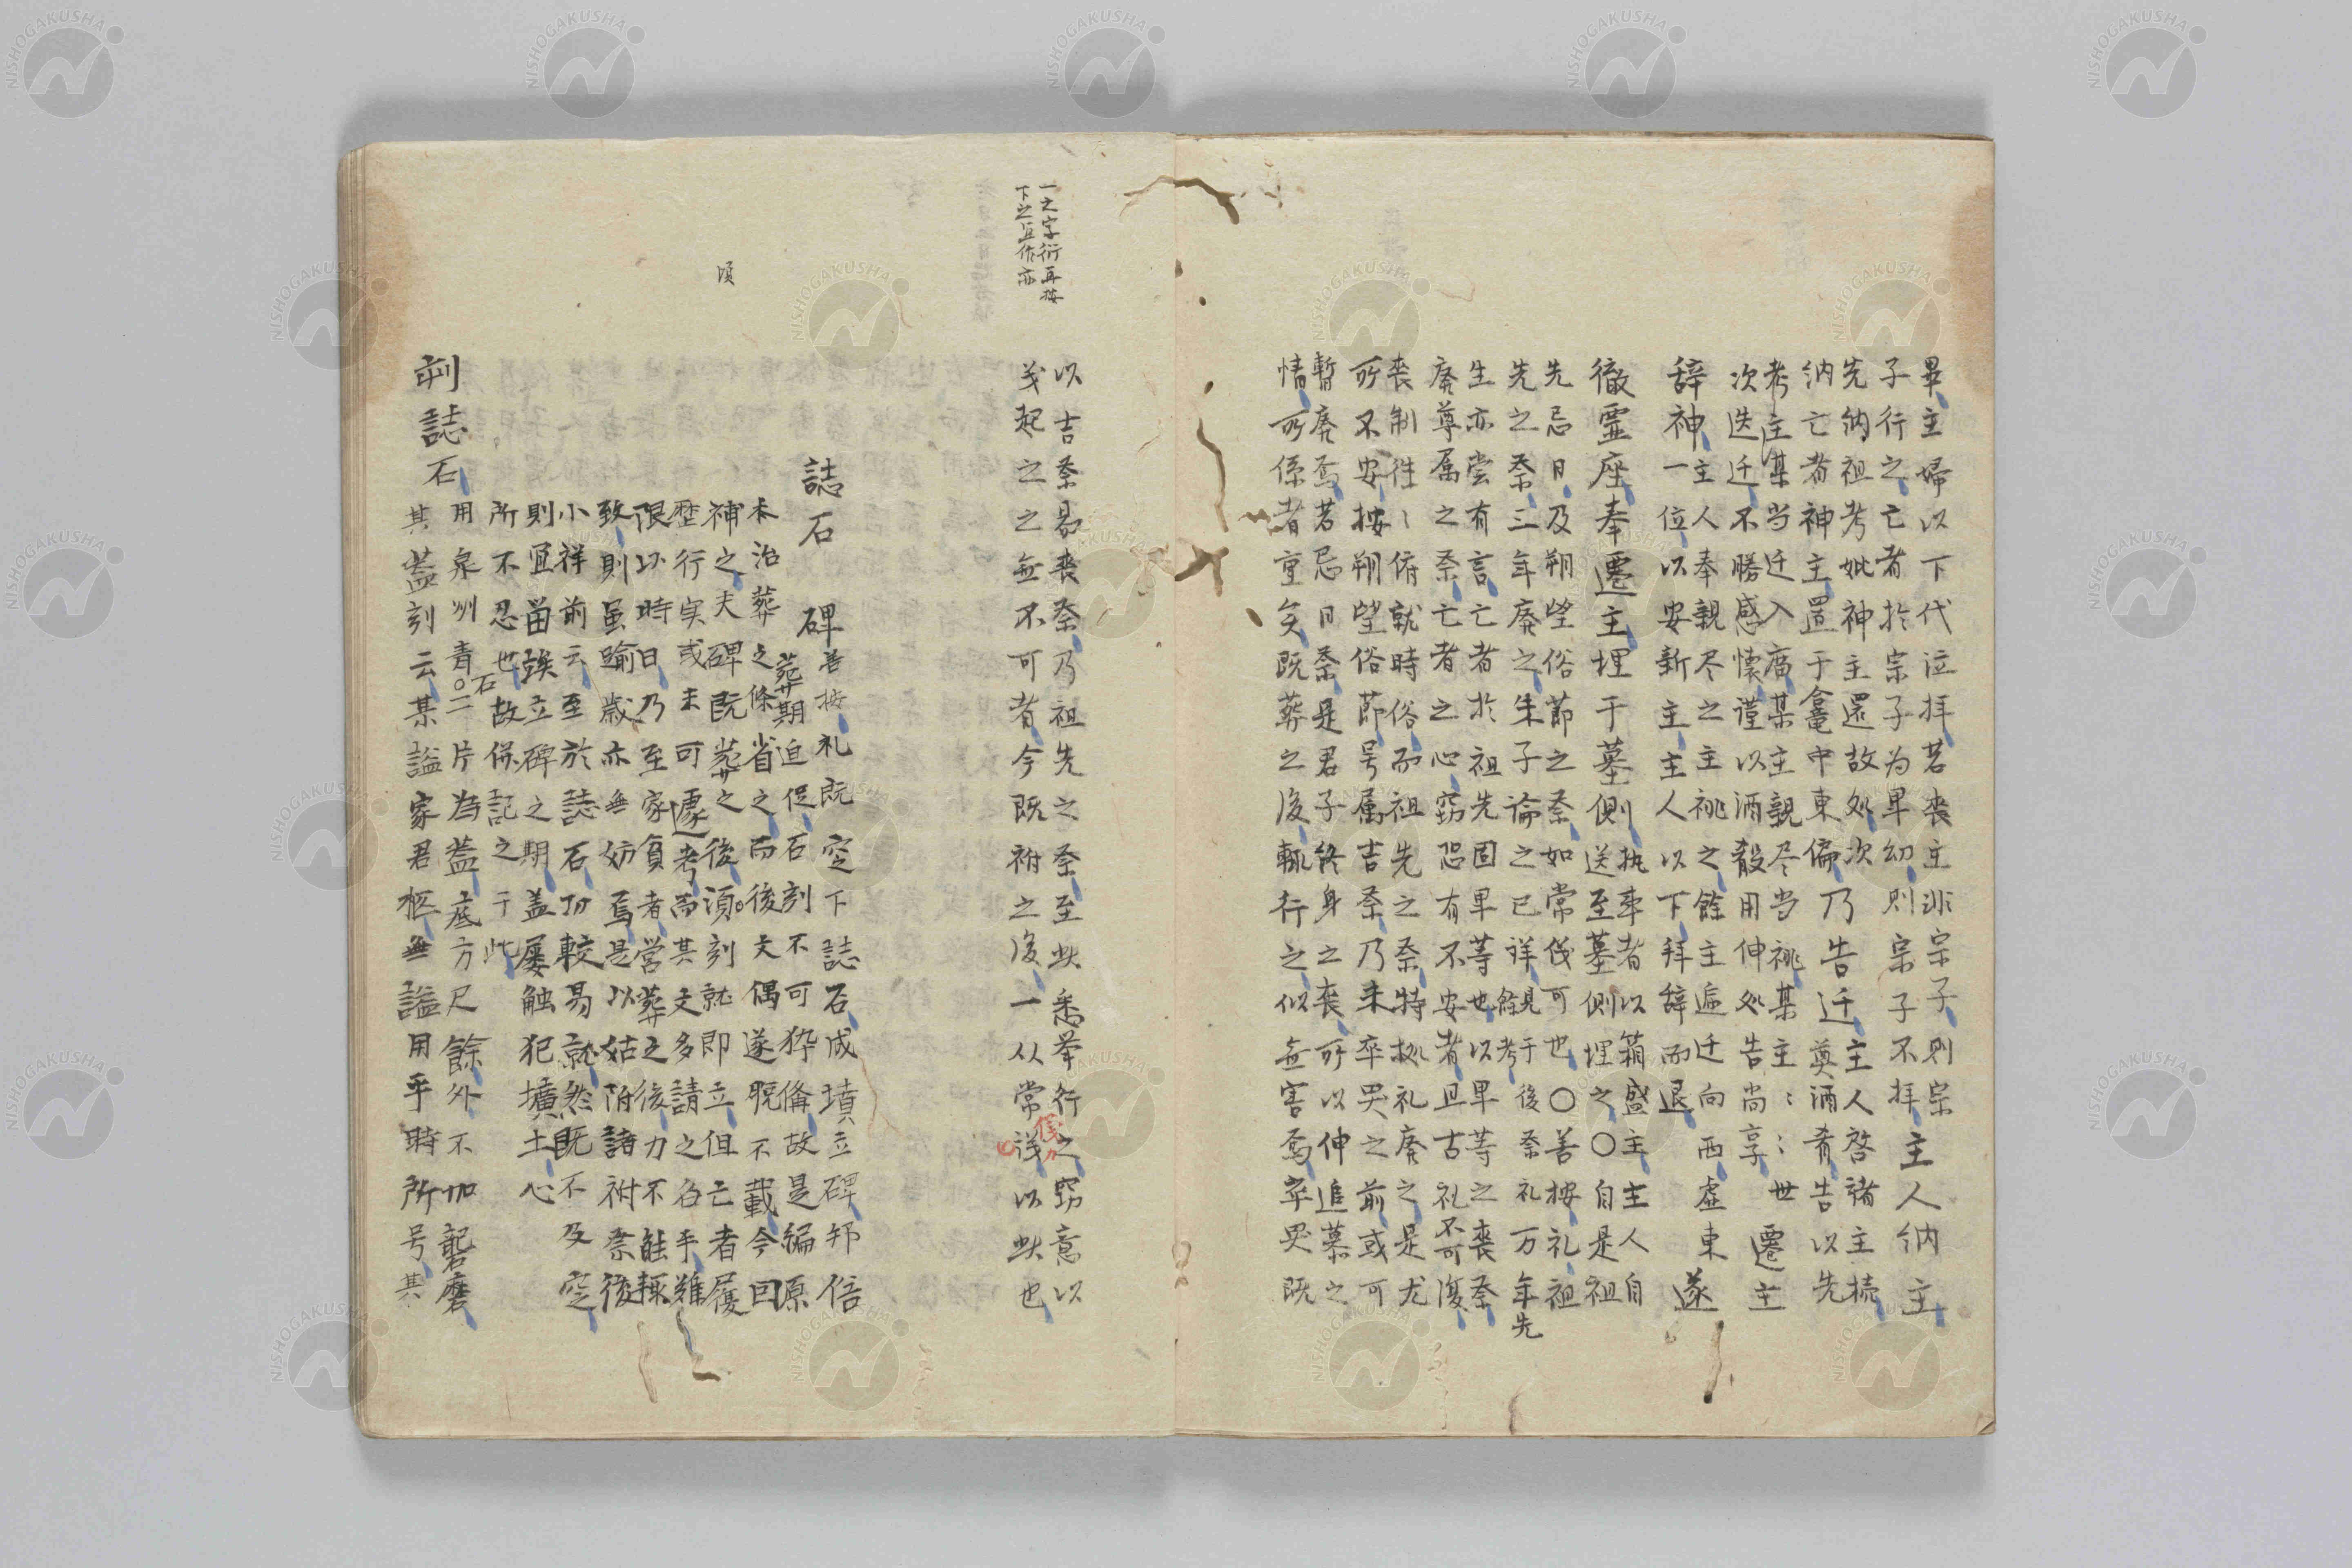 畢、主婦以下代泣拝、若喪主非宗子、則宗
子行之、亡者於宗子為卑幼、則宗子不拝、主人納主
先納祖考妣神主還故処、次
納亡者神主、置于龕中東偏、乃告迁主人啓禘主、
奠酒肴告以先
考主某当迁入廟、某主親尽当祧、某主
次迭迁、不勝感愴、謹以酒殽用伸処告尚享、世遷主
主人奉親尽之主祧之、餘主遍迁向西、虚東
辞神、一位、以安新主、主人以下拝辞而退、遂
徹霊座、奉遷主、埋于墓側
執事者以箱盛主、主人自
送至墓側埋之〇自是祖
先忌日、及朔望俗節之祭、如常儀可也、〇善按礼、祖
先之祭、三年廃之、朱子論之已詳、餘見于後考祭礼万年先
生亦嘗有言、亡者於祖先固卑等也、以卑等之喪祭、
廃尊属之祭、亡者之心、窃恐有不安者、且古礼不可復、
喪制往〻俯就時俗、而祖先之祭、特拠礼廃之、是尤
所不安、按朔望俗節、号属吉祭、乃未卒哭之前、或可
暫廃焉、若忌日祭、是君子終身之喪、所以伸追慕之
情、所係者重矣、既葬之後、輙行之、似無害焉、卒哭既
一之字衍再按
下之宜作亦
以吉祭易喪祭、乃祖先之祭、至此悉挙行之、窃意以
義起之之無不可者、今既祔之後、一从常儀、以此也、
誌石 碑
善按、礼既窆下誌石、成墳立碑、邦俗
葬期迫促、石刻不可猝備、故是編原
本治葬之條、省之、而後文偶遂脱不載、今因
補之、夫碑既葬之後、湏刻就即立、但亡者履
頃
歴行実、或未可遽考、而其文多請之名手、難
限以時日、乃至家貧者、営葬之後、力不能輙
致、則虽踰歳亦無妨焉、是以姑附諸祔祭後、
小祥前云、至於誌石、功較易就、然既不及窆、
則宜畄竢立碑之期、盖屡触犯墳土、心
所不忍也、故併記之于此、
刻誌石、
用泉州青石二片為蓋、底方尺餘、外不加礱磨、
其蓋刻云、某謚家君柩、無謚用平時所号、其